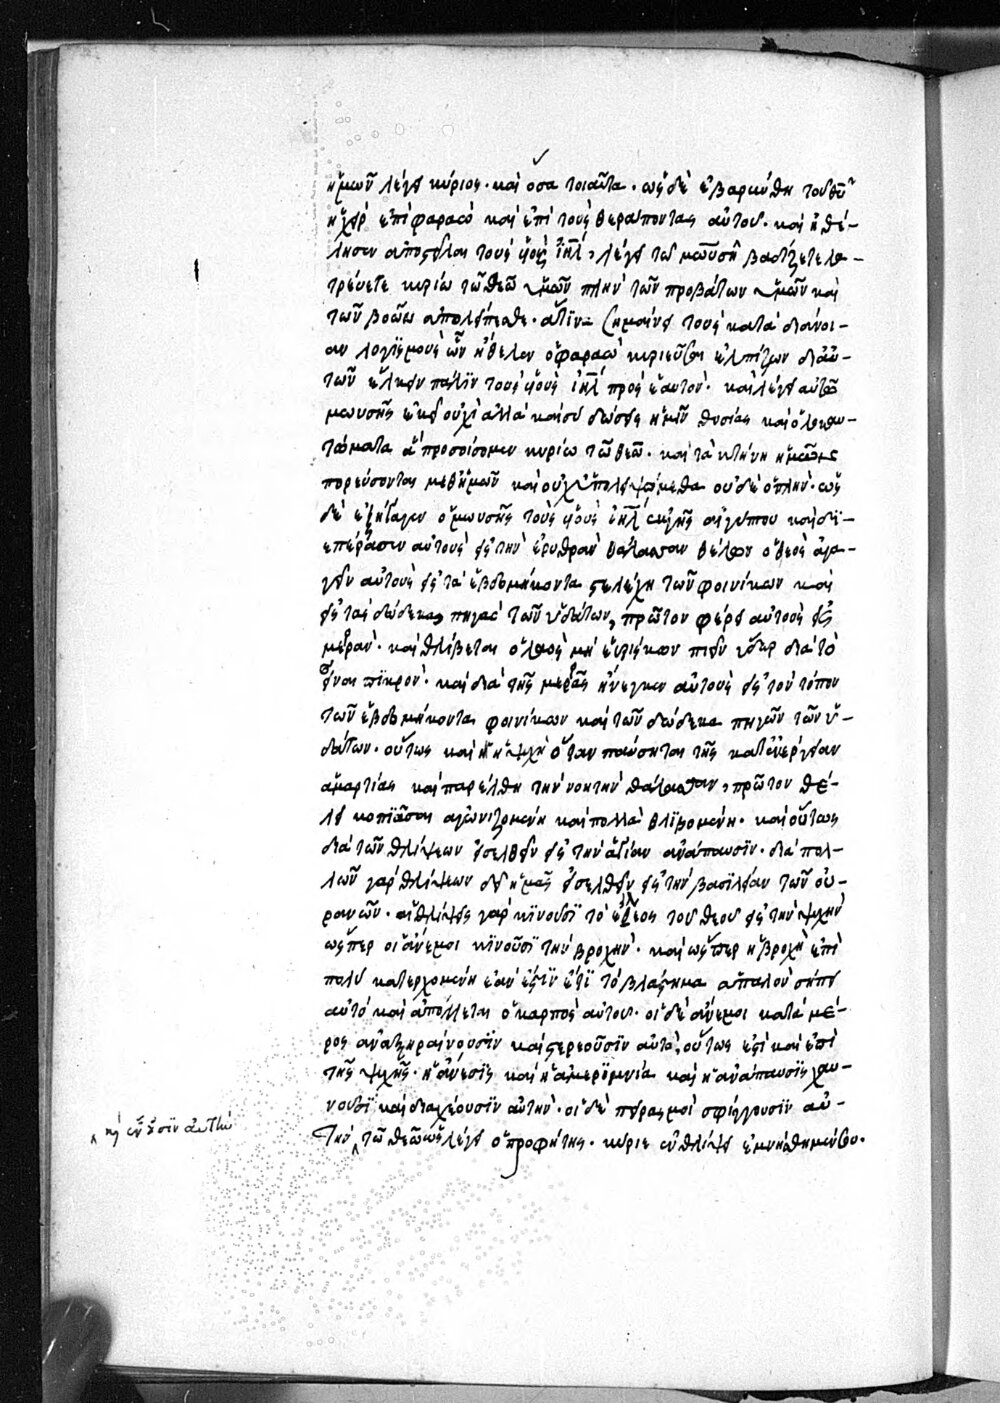 ἡμῶν λέγει κύριος· καὶ ὅσα τοιαῦτα· ὡς δὲ ἐβαρύνθη τοῦ θῦ
ἡ χεὶρ ἐπὶ φαραὸ καὶ ἐπὶ τοὺς θεράποντας αὐτοῦ· καὶ ἠθέ-
λησεν ἀποστεῖλαι τοὺς υἱοὺς ἰηλ, λέγει τῶ μωϋσῆ βαδίζετε λα-
τρεύετε κυρίω τῶ θεῶ ὑμῶν πλὴν τῶν προβάτων ὑμῶν καὶ
τῶν βοῶν ἀπολείπεσθε· ἅτινα σημαίνει τοὺς κατὰ διάνοι-
αν λογισμοὺς ὧν ἤθελεν ὁ φαραὼ κυριεῦσαι ἐλπίζων δι' αὐ-
τῶν ἕλκειν πάλιν τοὺς υἱοὺς ἰηλ πρὸς ἑαυτόν· καὶ λέγει αὐτῶ
μωυσῆς ἐκεῖ οὐχὶ ἀλλὰ καὶ σὺ δώσεις ἡμῖν θυσίας καὶ ὁλοκαυ-
τώματα ἃ προσοίσομεν κυρίω τῶ θεῶ· καὶ τὰ κτήνη ἡμῶν
πορεύσονται μεθ' ἡμῶν καὶ οὐχ ὑπολειψόμεθα οὐδὲ ὁπλήν· ὡς
δὲ ἐξήγαγεν ὁ μωυσῆς τοὺς υἱοὺς ἰηλ ἐκ γῆς αἰγύπου καὶ δι-
επέρασεν αὐτοὺς εἰς τὴν ἐρυθρὰν θάλασσαν θέλων ὁ θεὸς ἀγα-
γεῖν αὐτοὺς εἰς τὰ ἑβδομήκοντα στελέχη τῶν φοινίκων καὶ
εἰς τὰς δώδεκα πηγὰς τῶν ὑδάτων, πρῶτον φέρει αὐτοὺς εἰς
μερράν· καὶ θλίβεται ὁ λαὸς μὴ εὑρίσκων πιεῖν ὕδωρ διὰ τὸ
εἶναι πικρόν· καὶ διὰ τῆς μερρᾶς ἤνεγκεν αὐτοὺς εἰς τὸν τόπον
τῶν ἑβδομήκοντα φοινίκων καὶ τῶν δώδεκα πηγῶν τῶν ὑ-
δάτων· οὕτως καὶ ἡ ψυχὴ ὅταν παύσηται τῆς κατ' ἐνέργειαν
ἁμαρτίας καὶ παρέλθη τὴν νοητὴν θάλασσαν, πρῶτον θέ-
λει κοπιᾶσαι ἀγωνιζομένη καὶ πολλὰ θλιβομένη· καὶ οὕτως
διὰ τῶν θλίψεων εἰσελθεῖν εἰς τὴν ἁγίαν ἀνάπαυσιν· διὰ πολ-
λῶν γὰρ θλίψεων δεῖ ἡμᾶς εἰσελθεῖν εἰς τὴν βασιλείαν τῶν οὐ-
ρανῶν· αἱ θλίψεις γὰρ κινοῦσι τὸ ἔλεος τοῦ θεοῦ εἰς τὴν ψυχὴν
ὥσπερ οἱ ἄνεμοι κινοῦσι τὴν βροχήν· καὶ ὥσπερ ἡ βροχὴ ἐπὶ
πολὺ κατερχομένη ἐὰν ἐστὶν ἔτι τὸ βλάστημα ἁπαλὸν σήπει
αὐτὸ καὶ ἀπόλλεται ὁ καρπὸς αὐτοῦ· οἱ δὲ ἄνεμοι κατὰ μέ-
ρος ἀναξηραίνουσιν καὶ στερεοῦσιν αὐτό, οὕτως ἐστὶ καὶ ἐπὶ
τῆς ψυχῆς· ἡ ἄνεσις καὶ ἡ ἀμεριμνία καὶ ἡ ἀνάπαυσις χαυ-
νοῦσι καὶ διαχέουσιν αὐτήν· οἱ δὲ πειρασμοὶ σφίγγουσιν αὐ-
τὴν ‸ τῶ θεῶ ὡς λέγει ὁ προφήτης· κύριε ἐν θλίψει ἐμνήσθημέν σου·
‸ καὶ ἑνοῦσιν αὐτὴν